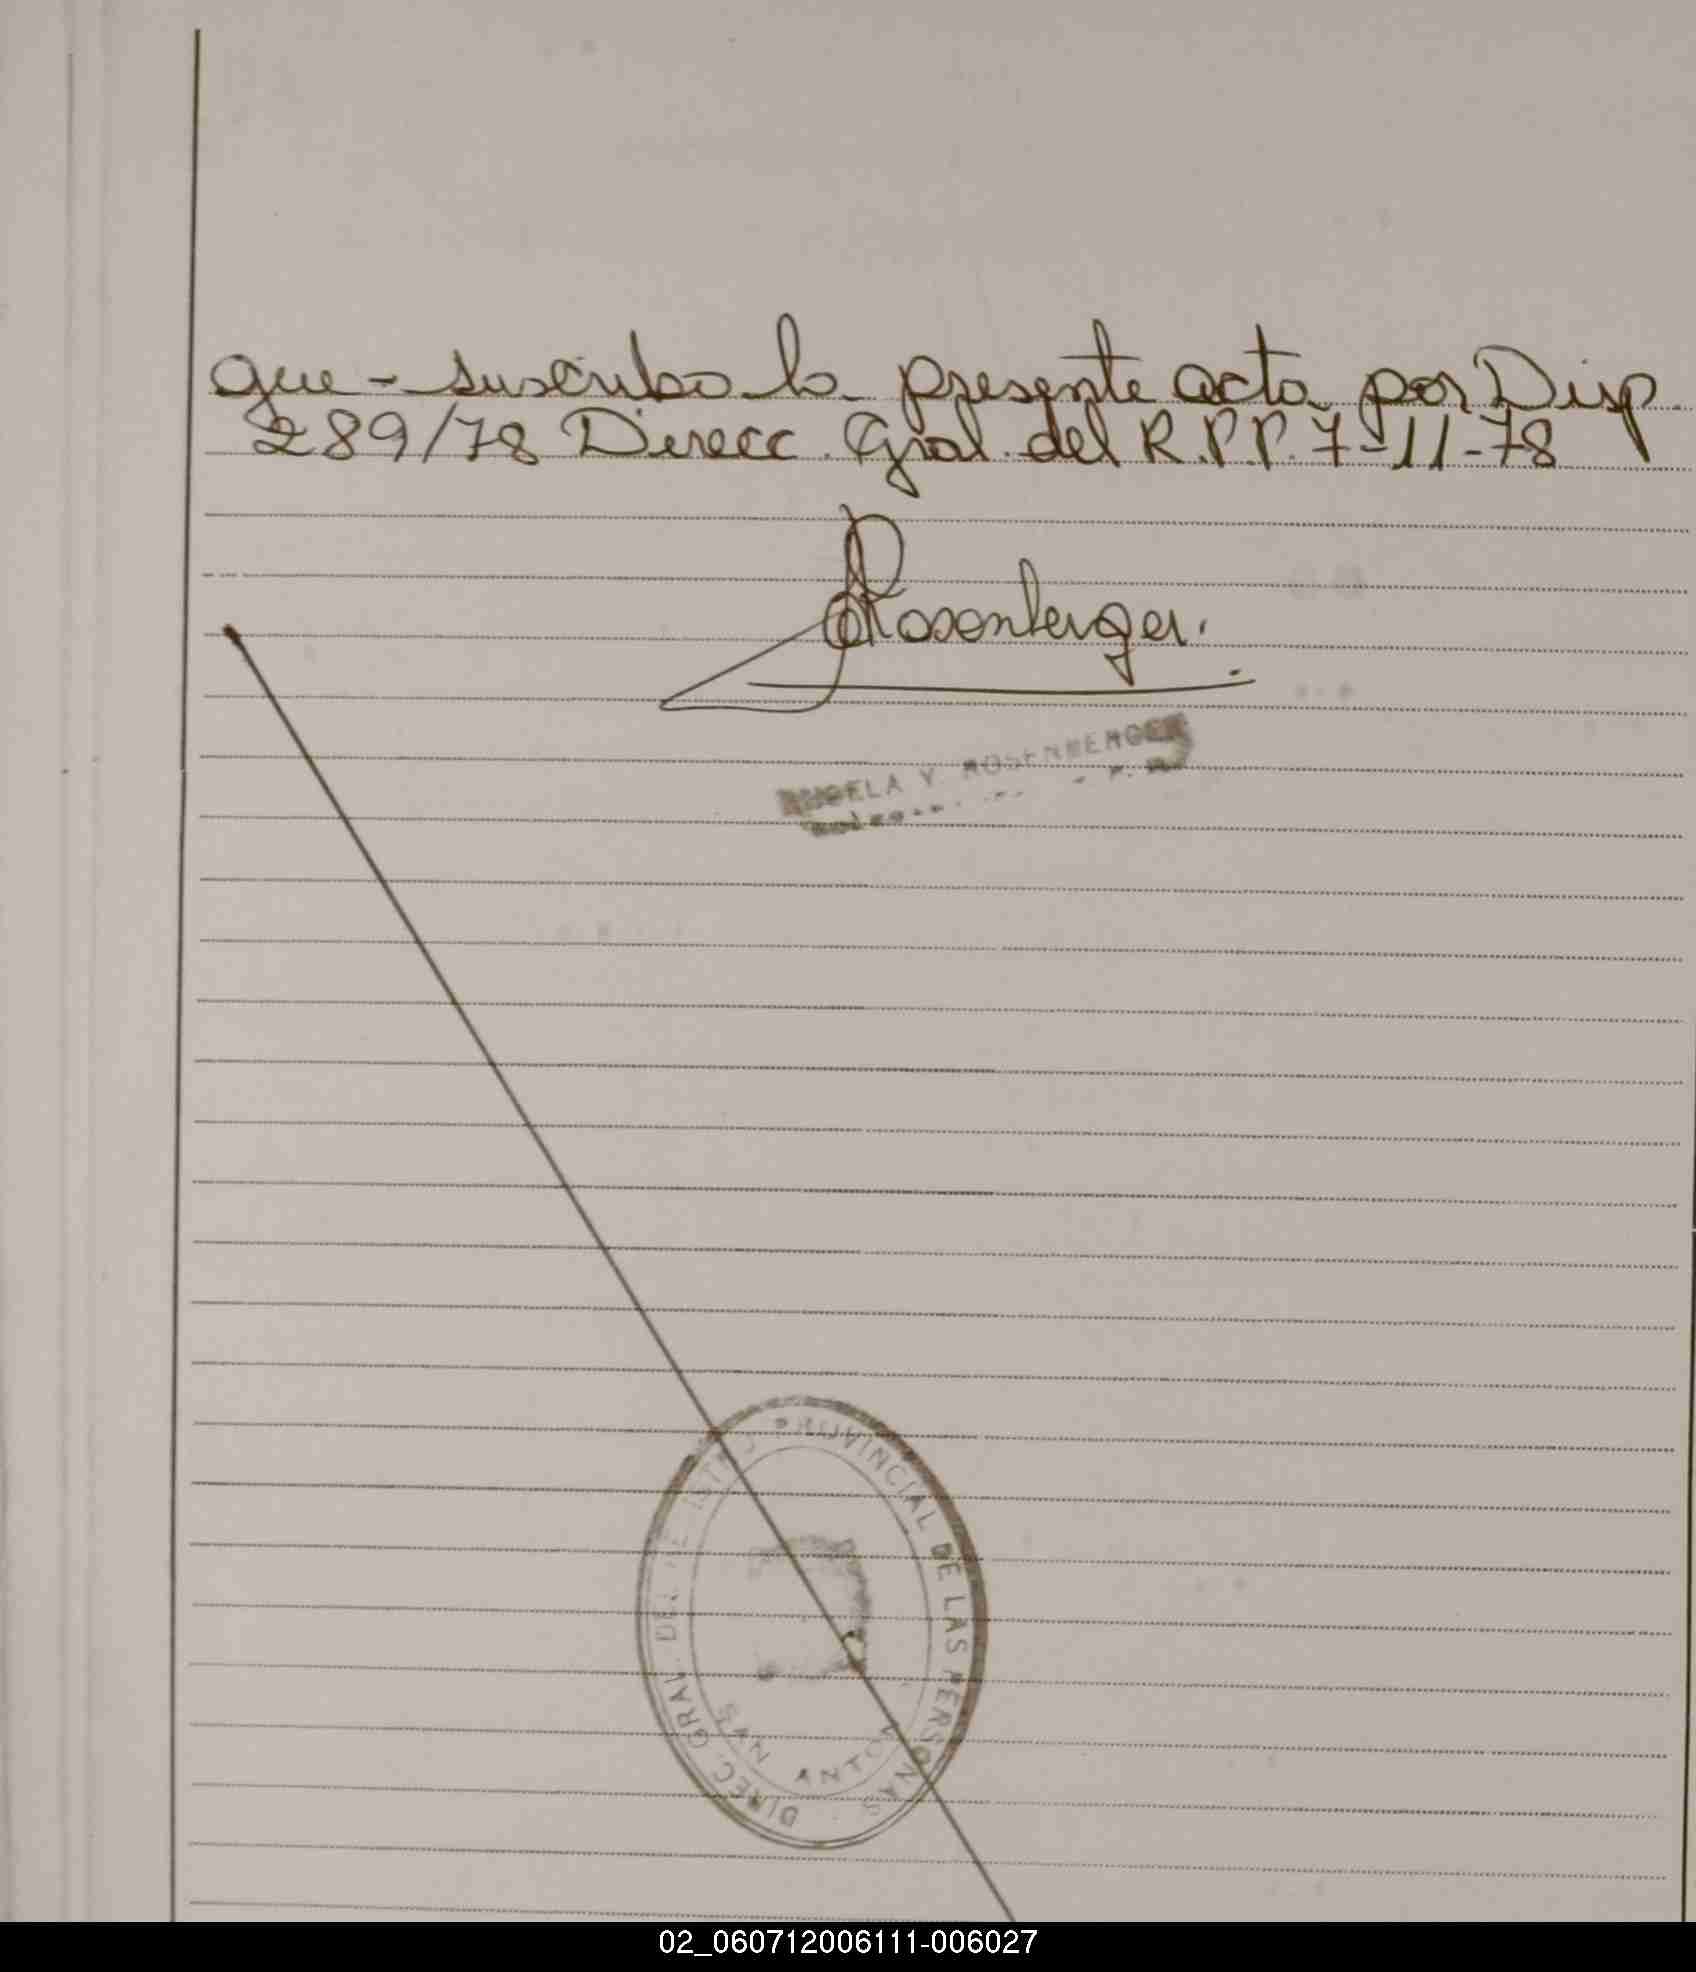 que - suscribo la presente acta por Disp.
289/78 Direcc. Gral. del R.P.P. 7-11-78
Rosenberger.
ANGELA Y. ROSENBERGER
DIREC. GRAL. DEL REGISTRO PROVINCIAL DE LAS PERSONAS
SAN ANTO
02_060712006111-006027